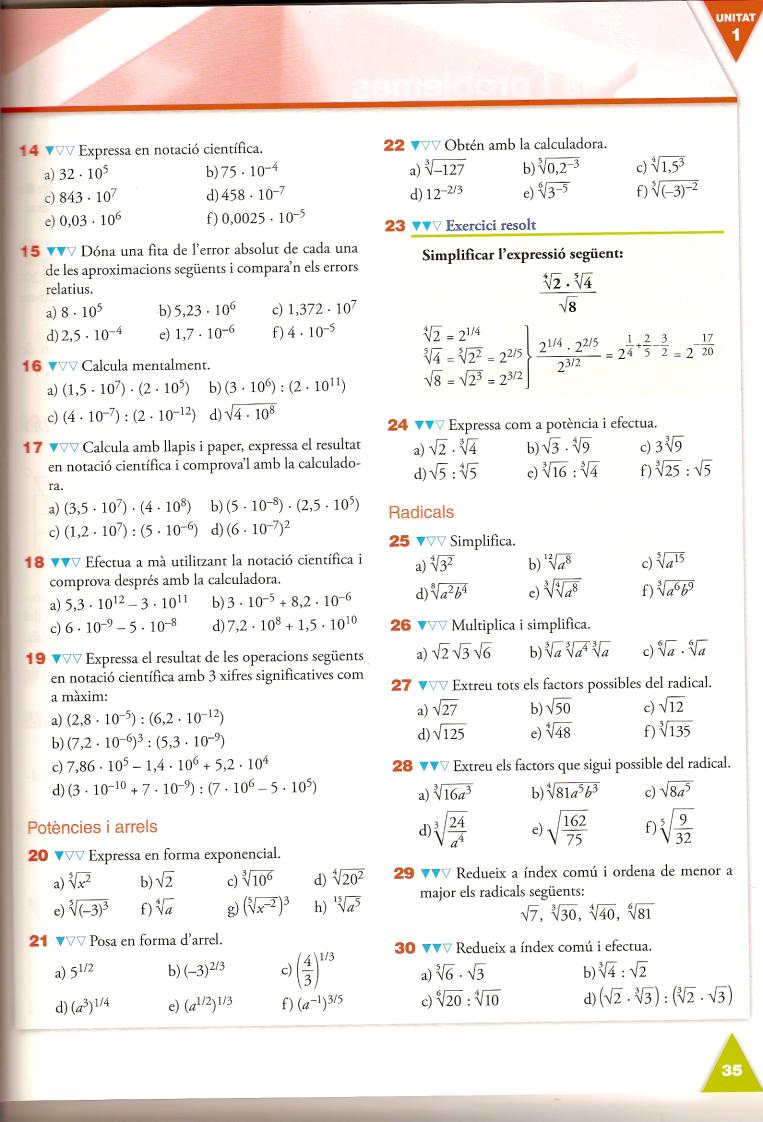 UNITAT
1
14 Expressa en notació científica.
a) 32 · 10⁵ b) 75 · 10⁻⁴
c) 843 · 10⁷ d) 458 · 10⁻⁷
e) 0,03 · 10⁶ f) 0,0025 · 10⁻⁵
15 Dóna una fita de l'error absolut de cada una
de les aproximacions següents i compara'n els errors
relatius.
a) 8 · 10⁵ b) 5,23 · 10⁶ c) 1,372 · 10⁷
d) 2,5 · 10⁻⁴ e) 1,7 · 10⁻⁶ f) 4 · 10⁻⁵
16 Calcula mentalment.
a) (1,5 · 10⁷) · (2 · 10⁵) b) (3 · 10⁶) : (2 · 10¹¹)
c) (4 · 10⁻⁷) : (2 · 10⁻¹²) d) √(4 · 10⁸)
17 Calcula amb llapis i paper, expressa el resultat
en notació científica i comprova'l amb la calculado-
ra.
a) (3,5 · 10⁷) · (4 · 10⁸) b) (5 · 10⁻⁸) · (2,5 · 10⁵)
c) (1,2 · 10⁷) : (5 · 10⁻⁶) d) (6 · 10⁻⁷)²
18 Efectua a mà utilitzant la notació científica i
comprova després amb la calculadora.
a) 5,3 · 10¹² – 3 · 10¹¹ b) 3 · 10⁻⁵ + 8,2 · 10⁻⁶
c) 6 · 10⁻⁹ – 5 · 10⁻⁸ d) 7,2 · 10⁸ + 1,5 · 10¹⁰
19 Expressa el resultat de les operacions següents
en notació científica amb 3 xifres significatives com
a màxim:
a) (2,8 · 10⁻⁵) : (6,2 · 10⁻¹²)
b) (7,2 · 10⁻⁶)³ : (5,3 · 10⁻⁹)
c) 7,86 · 10⁵ – 1,4 · 10⁶ + 5,2 · 10⁴
d) (3 · 10⁻¹⁰ + 7 · 10⁻⁹) : (7 · 10⁶ – 5 · 10⁵)
Potències i arrels
20 Expressa en forma exponencial.
a) ⁵√x² b) √2 c) ³√10⁶ d) ⁴√20²
e) ⁵√(–3)³ f) ⁴√a g) (⁵√x⁻²)³ h) ¹⁵√a⁵
21 Posa en forma d'arrel.
a) 5^1/2 b) (–3)^2/3 c) (4/3)^1/3
d) (a³)^1/4 e) (a^1/2)^1/3 f) (a⁻¹)^3/5
22 Obtén amb la calculadora.
a) ³√–127 b) ⁵√0,2⁻³ c) ⁴√1,5³
d) 12^–2/3 e) ⁶√3⁻⁵ f) ⁵√(–3)⁻²
23 Exercici resolt
Simplificar l'expressió següent:
⁴√2 · ⁵√4
√8
⁴√2 = 2^1/4
⁵√4 = ⁵√2² = 2^2/5
√8 = √2³ = 2^3/2
(2^1/4 · 2^2/5) / 2^3/2 = 2^(1/4 + 2/5 – 3/2) = 2^(–17/20)
24 Expressa com a potència i efectua.
a) √2 · ³√4 b) √3 · ⁴√9 c) 3 ³√9
d) √5 : ⁴√5 e) ³√16 : ³√4 f) ³√25 : √5
Radicals
25 Simplifica.
a) ⁴√3² b) ¹²√a⁸ c) ⁵√a¹⁵
d) ⁸√a²b⁴ e) ³√⁴√a⁸ f) ³√a⁶b⁹
26 Multiplica i simplifica.
a) √2 √3 √6 b) ³√a ³√a⁴ ³√a c) ⁶√a · ⁶√a
27 Extreu tots els factors possibles del radical.
a) √27 b) √50 c) √12
d) √125 e) ⁴√48 f) ³√135
28 Extreu els factors que sigui possible del radical.
a) ³√16a³ b) ⁴√81a⁵b³ c) √8a⁵
d) ³√(24/a⁴) e) √(162/75) f) ⁵√(9/32)
29 Redueix a índex comú i ordena de menor a
major els radicals següents:
√7, ³√30, ⁴√40, ⁶√81
30 Redueix a índex comú i efectua.
a) ⁵√6 · √3 b) ³√4 : √2
c) ⁶√20 : ⁴√10 d) (√2 · ³√3) : (³√2 · √3)
35